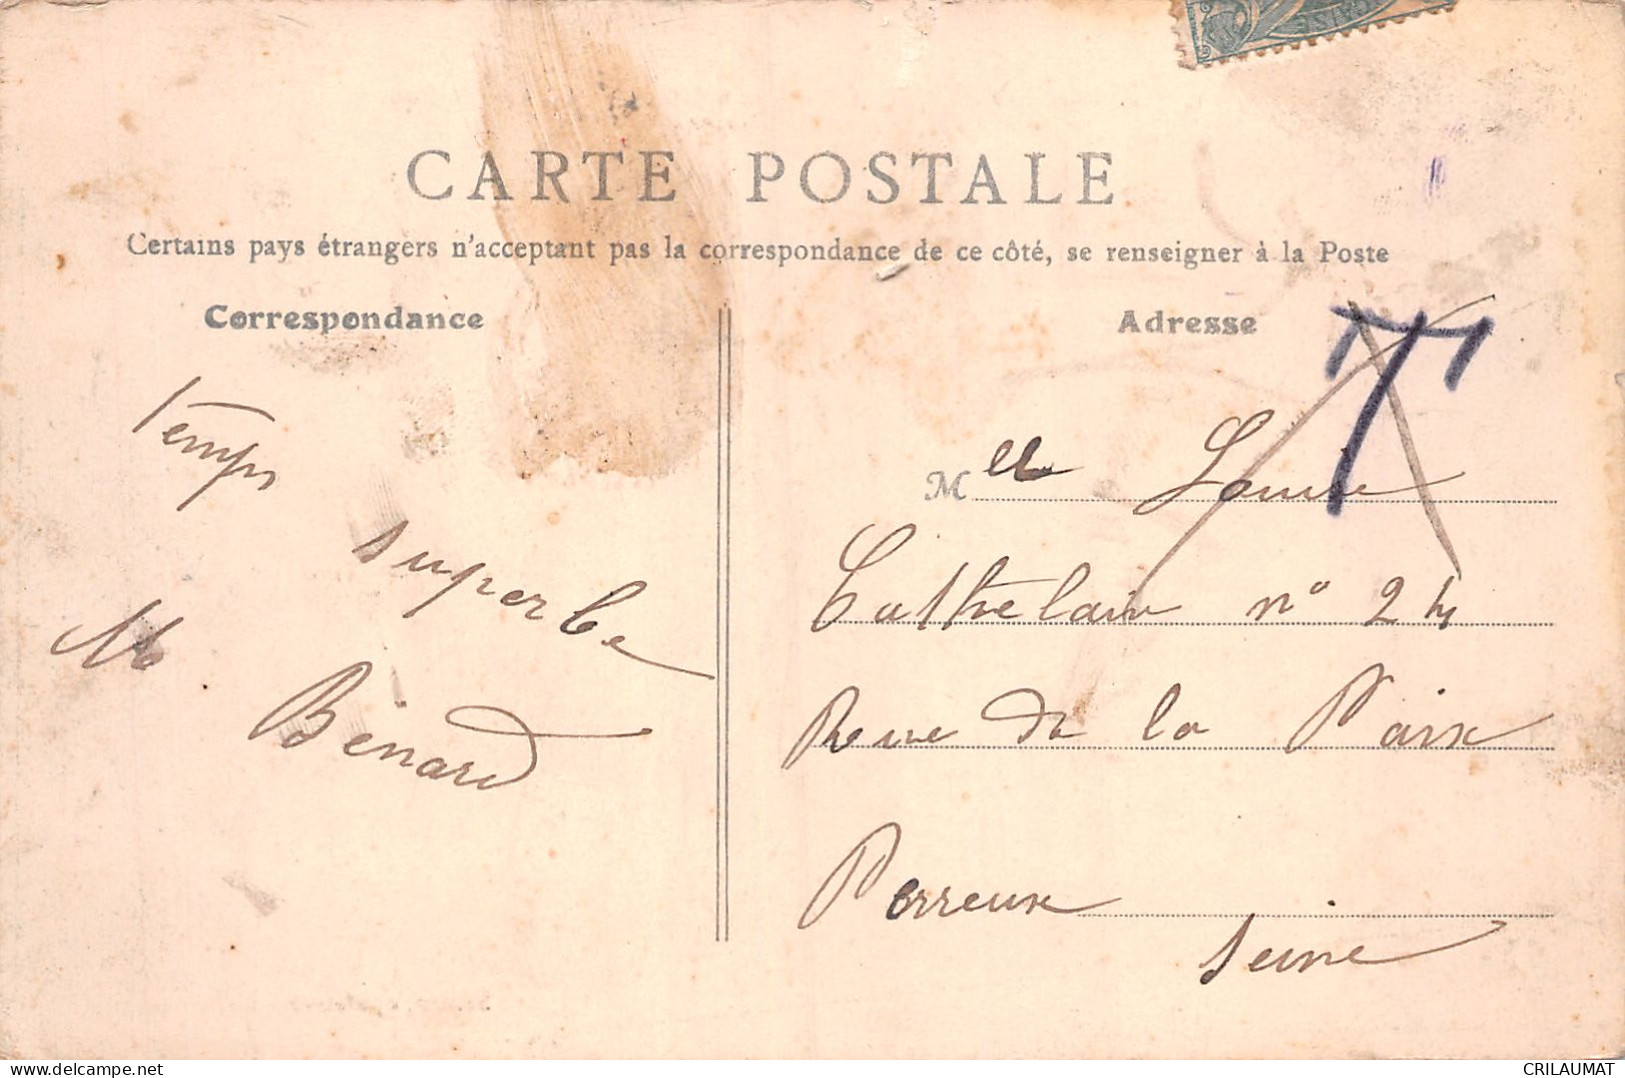 CARTE POSTALE
Certains pays étrangers n'acceptant pas la correspondance de ce côté, se renseigner à la Poste
Correspondance
Temps
superbe
M
Bénard
Adresse
T
Mlle Louise
Cathelain n° 24
Rue de la Paix
Perreux
Seine
delcampe.net
CRILAUMAT